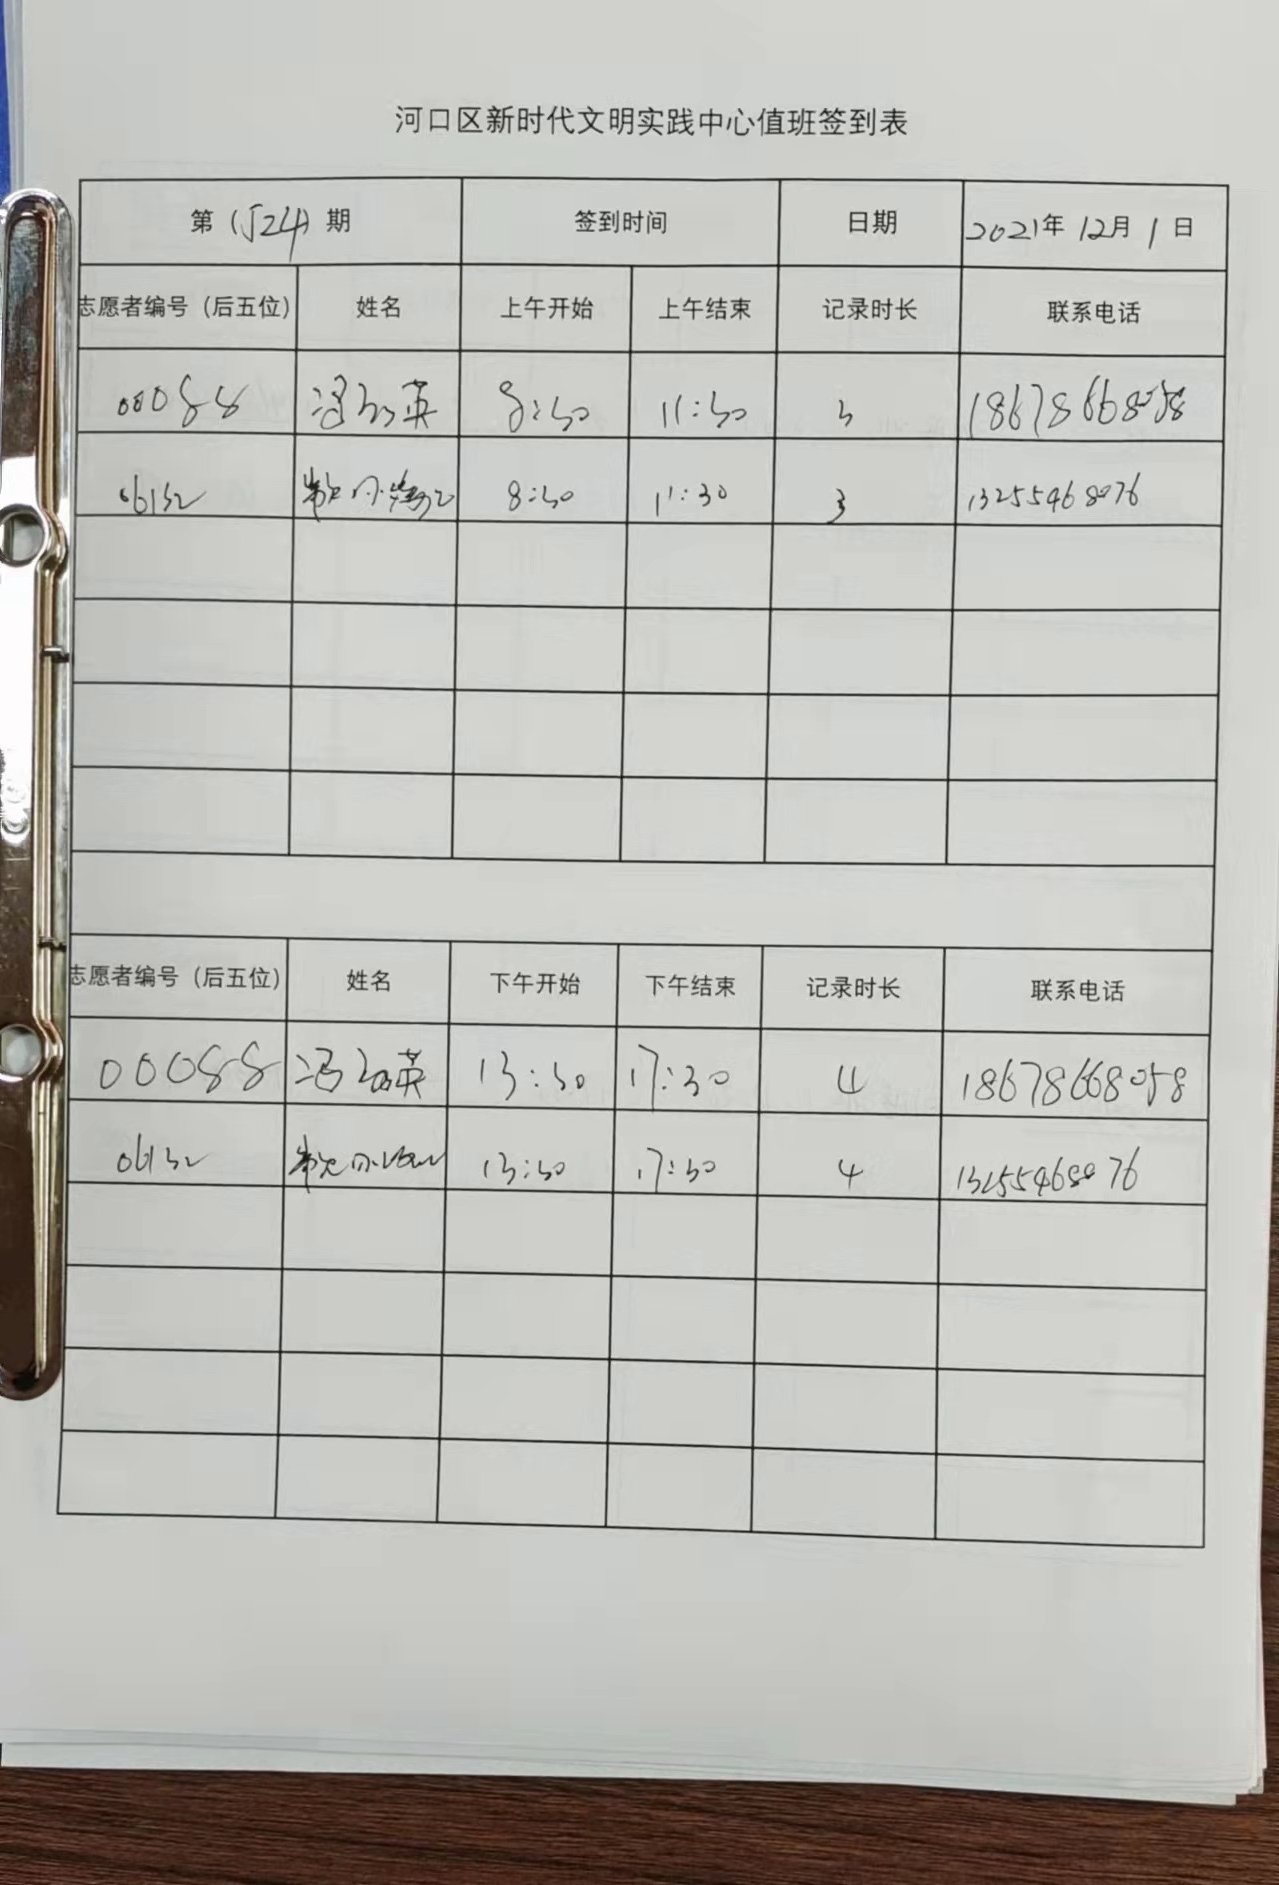 河口区新时代文明实践中心值班签到表
第（524）期 签到时间 日期 2021年 12月 1 日
志愿者编号（后五位） 姓名 上午开始 上午结束 记录时长 联系电话
00088 冯 英 8:30 11:30 3 18678668058
06132 8:30 11:30 3 13255468076
志愿者编号（后五位） 姓名 下午开始 下午结束 记录时长 联系电话
00088 冯 英 13:30 17:30 4 18678668058
06132 13:30 17:30 4 13255468076